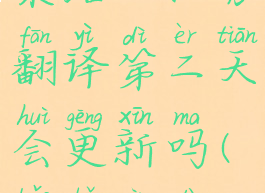 fān yì dì èr tiān
翻译第二天
huì gēng xīn ma
会更新吗(